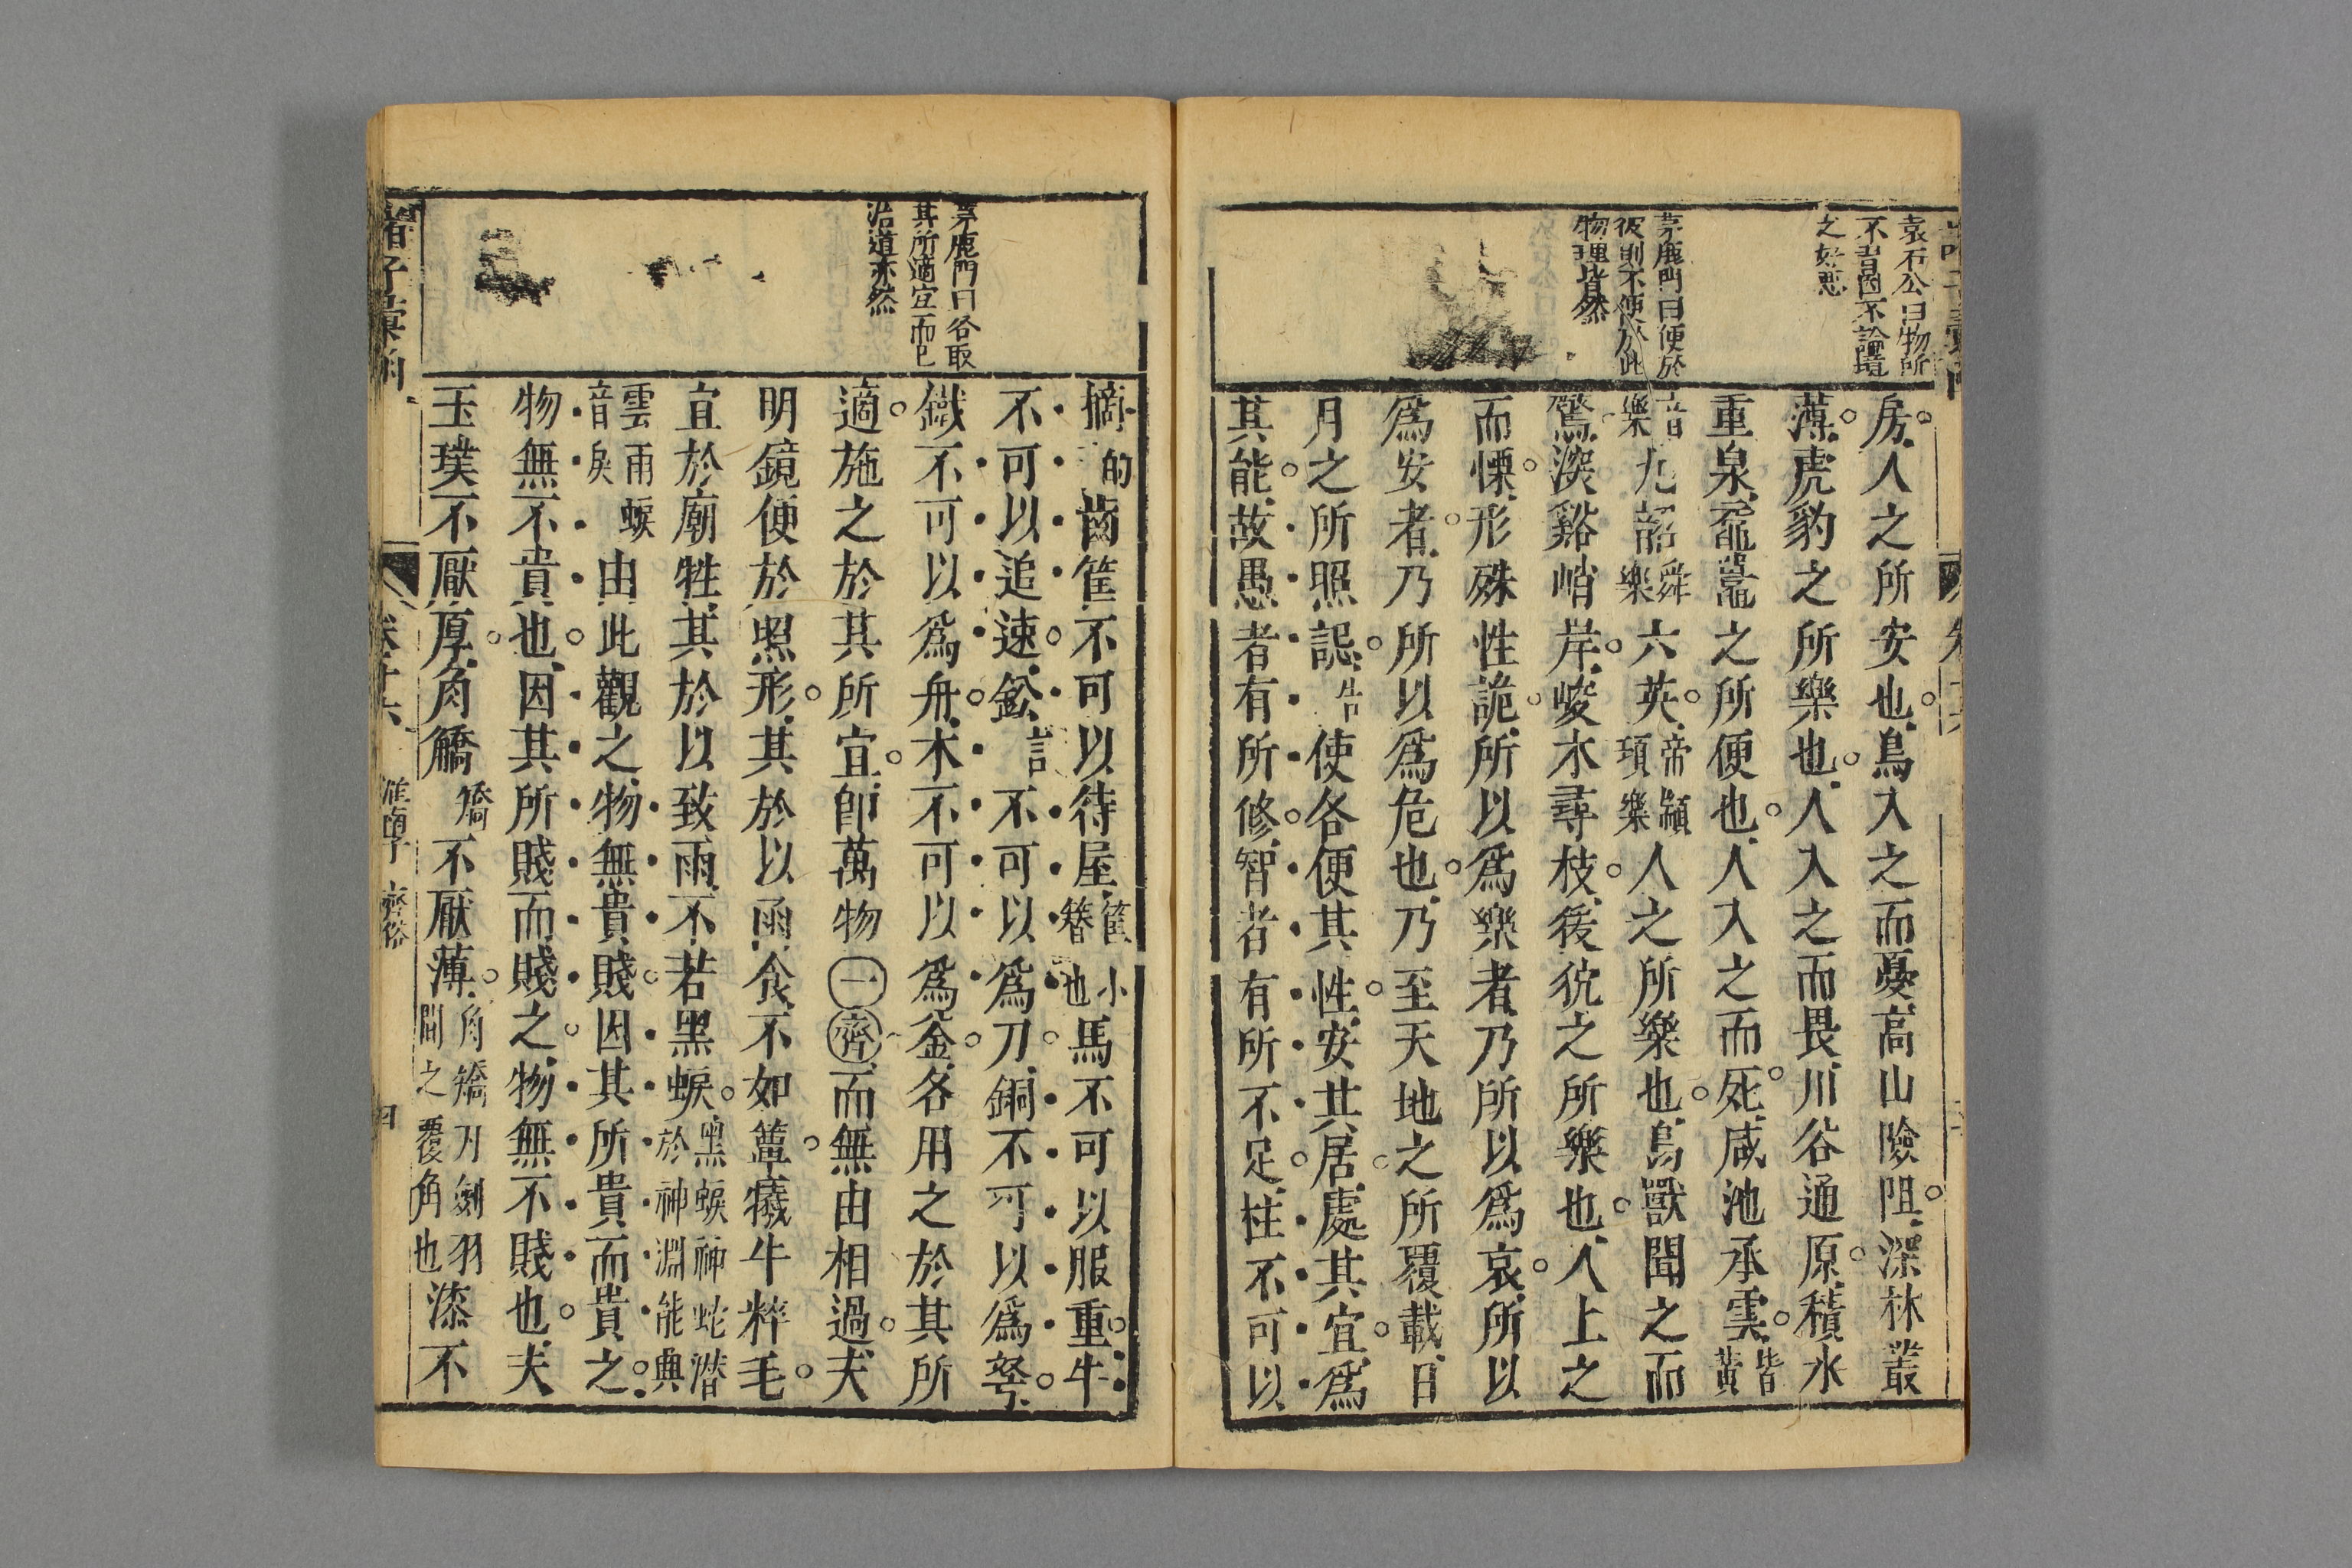 袁石公曰物所
不習固不論環
之好惡
茅鹿門曰便於
彼則不便於此
物理皆然
房人之所安也鳥入之而憂高山險阻深林叢
薄虎豹之所樂也人入之而畏川谷通原積水
重泉黿鼉之所便也人入之而死咸池承雲皆黃
音樂九韶舜樂六英帝顓頊樂人之所樂也鳥獸聞之而
驚深谿峭岸峻木尋枝猨狖之所樂也人上之
而慄形殊性詭所以爲樂者乃所以爲哀所以
爲安者乃所以爲危也乃至天地之所覆載日
月之所照誋告使各便其性安其居處其宜爲
其能故愚者有所修智者有所不足柱不可以
茅鹿門曰各取
其所適宜而已
治道亦然
摘的齒筐不可以待屋筐小簪也馬不可以服重牛
不可以追速鈆言不可以爲刀銅不可以爲弩
鐵不可以爲舟木不可以爲釜各用之於其所
適施之於其所宜卽萬物一齊而無由相過夫
明鏡便於照形其於以函食不如簞犧牛粹毛
宜於廟牲其於以致雨不若黑蜧黑蜧神蛇潛於神淵能興
雲雨蜧音戾由此觀之物無貴賤因其所貴而貴之
物無不貴也因其所賤而賤之物無不賤也夫
玉璞不厭厚角䚩矯不厭薄角矯刀劍羽間之覆角也漆不
諸子彙函
卷十六
淮南子
齊俗
四